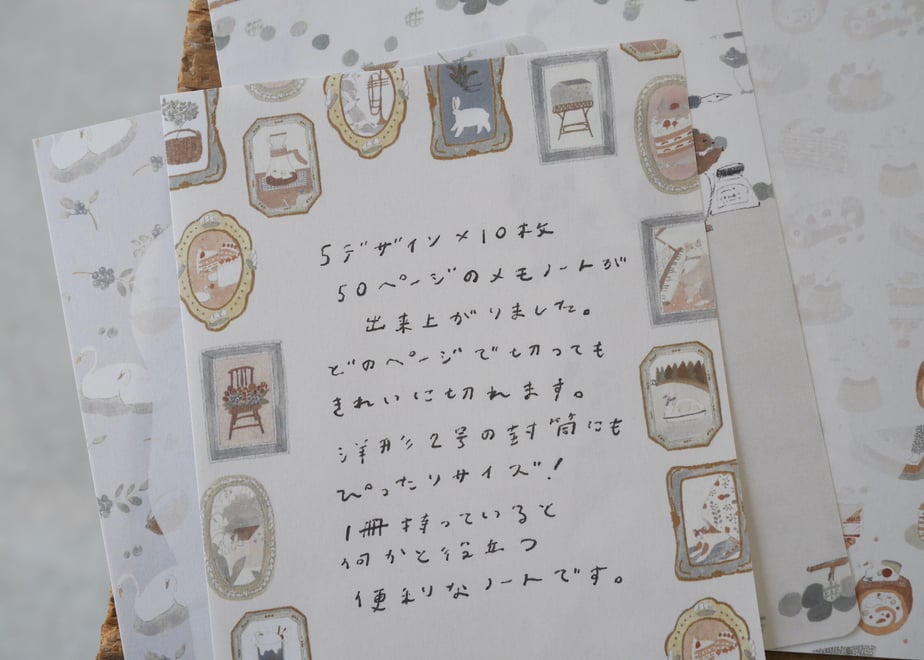 5デザイン×10枚
50ページのメモノートが
出来上がりました。
どのページで切っても
きれいに切れます。
洋形2号の封筒にも
ぴったりサイズ!
1冊持っていると
何かと役立つ
便利なノートです。